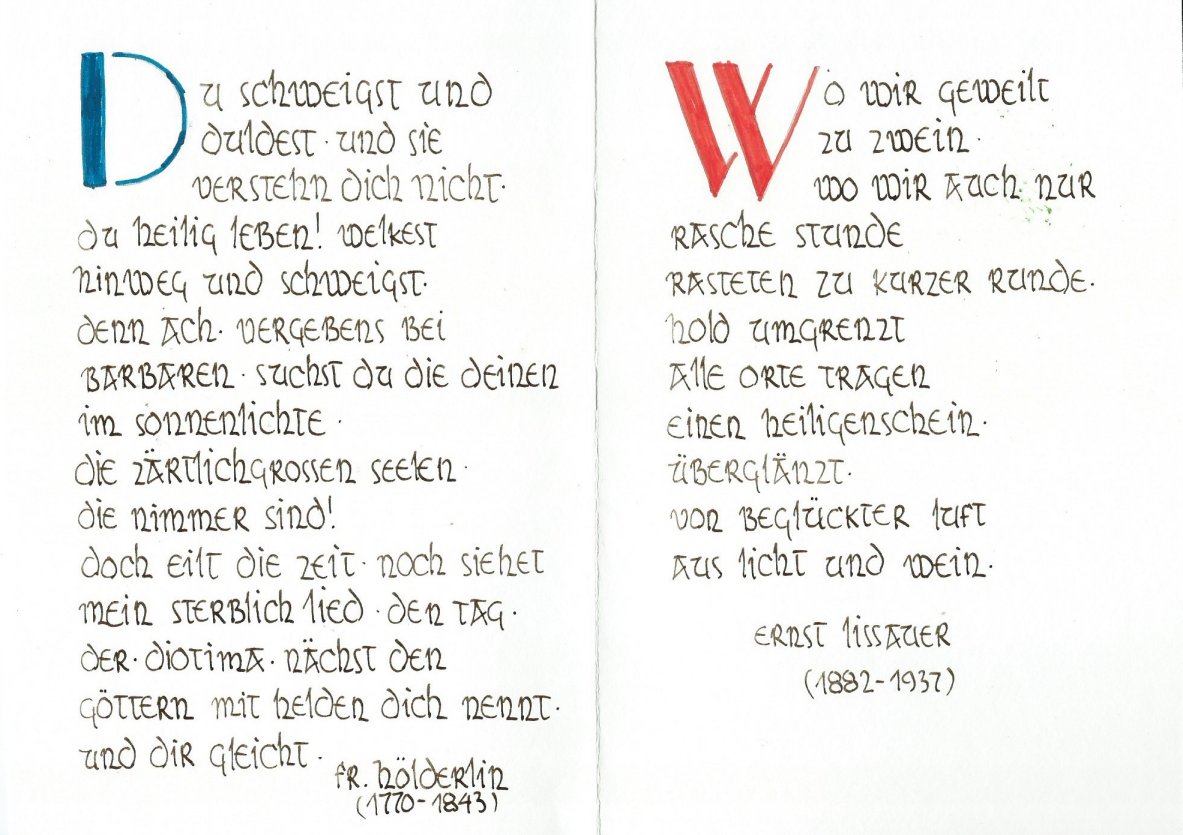 Du schweigst und
duldest · und sie
verstehn dich nicht ·
du heilig leben! welkest
hinweg und schweigst ·
denn ach · vergebens bei
barbaren · suchst du die deinen
im sonnenlichte ·
die zärtlichgrossen seelen ·
die nimmer sind!
doch eilt die zeit · noch siehet
mein sterblich lied · den tag ·
der · diotima · nächst den
göttern mit helden dich nennt ·
und dir gleicht ·
fr. hölderlin
(1770-1843)
Wo wir geweilt
zu zwein ·
wo wir auch nur
rasche stunde
rasteten zu kurzer runde ·
hold umgrenzt
alle orte tragen
einen heiligenschein ·
überglänzt ·
von beglückter luft
aus licht und wein ·
ernst lissauer
(1882-1937)